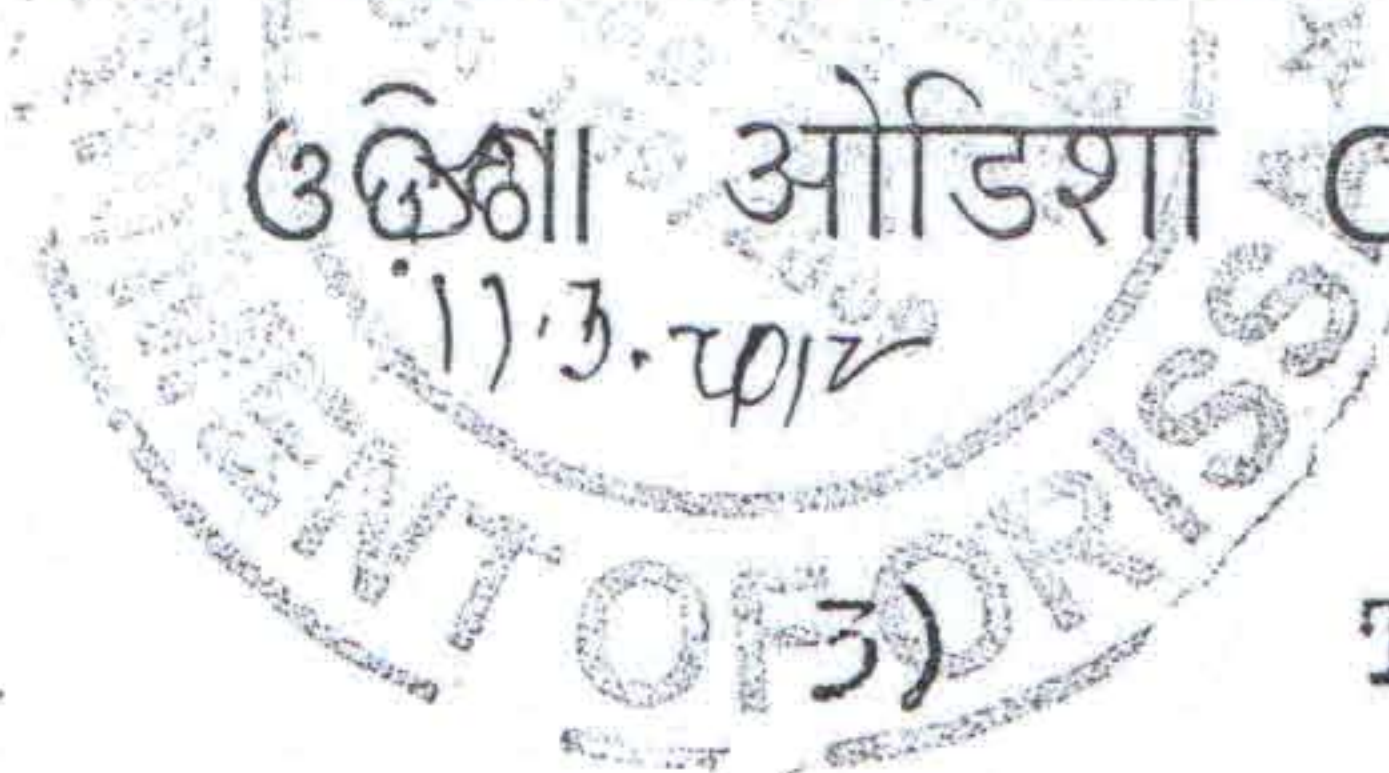 ଓଡ଼ିଶା ओडिशा
11.3.2012
ENT OF ORISSA
3)